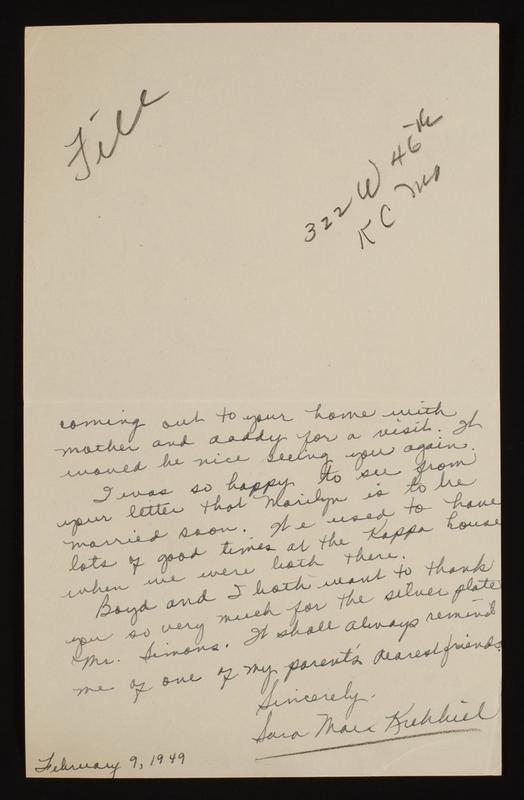 File
322 W 46th
K C Mo
coming out to your home with
mother and daddy for a visit. It
would be nice seeing you again.
I was so happy to see from
your letter that Marilyn is to be
married soon. We used to have
lots of good times at the Kappa house
when we were both there.
Boyd and I both want to thank
you so very much for the silver plate
Mr. Simons. It shall always remind
me of one of my parent's dearest friends.
Sincerely,
Sara Marx Krehbiel
February 9, 1949